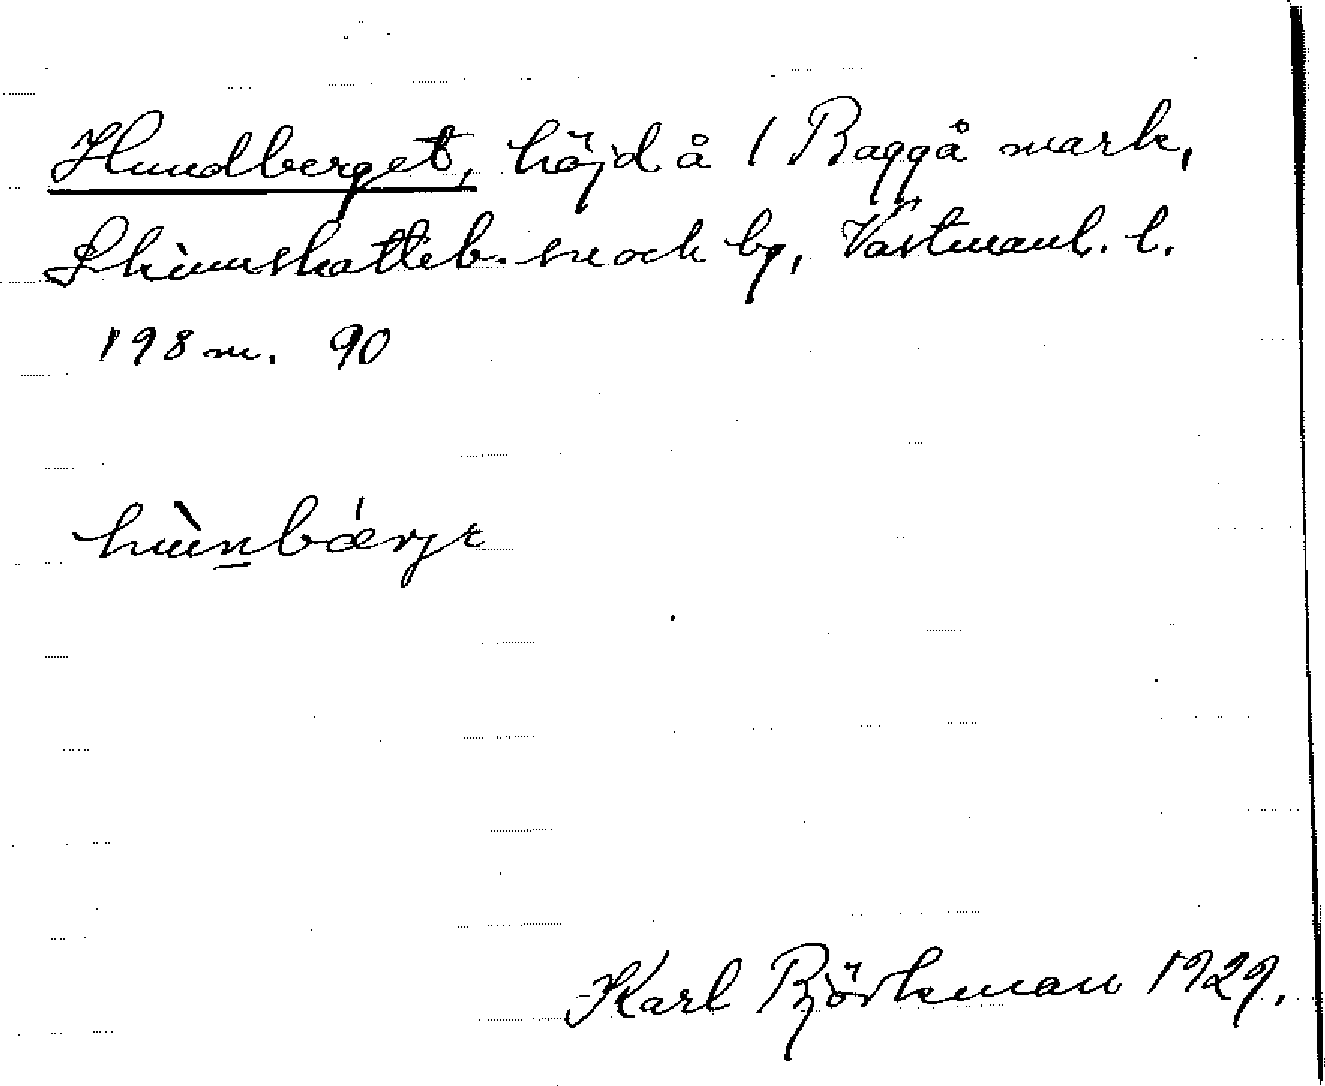 Hundberget, höjd å / Baggå mark,
Skinnskatteb. sn och bg, Västmanl. l.
198 m. 90
hùnbǽrjε
Karl Björkman 1929.